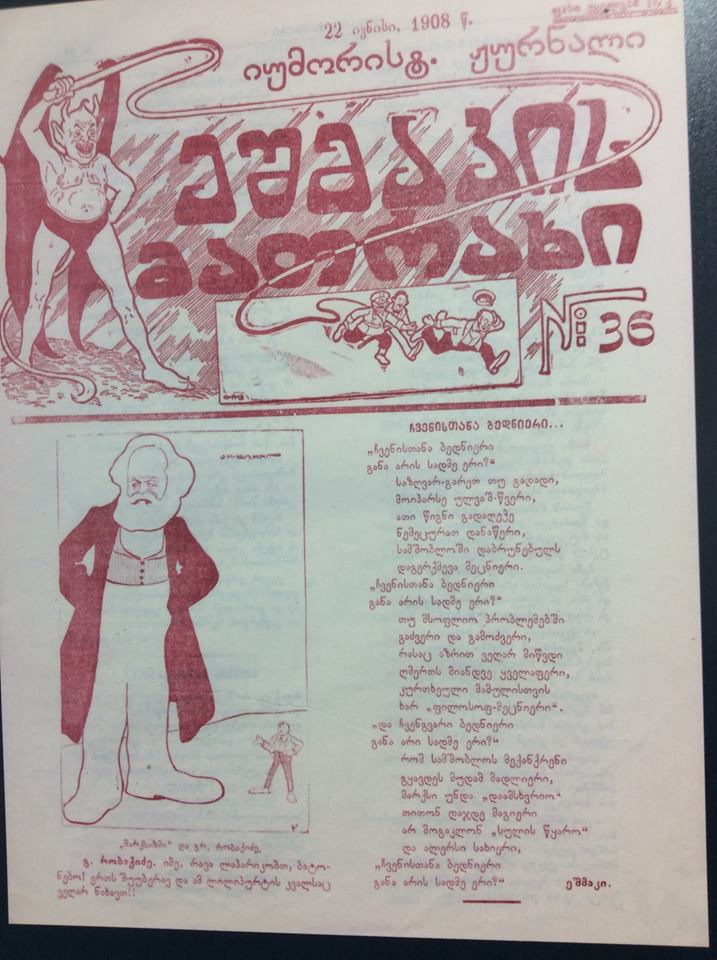 22 ივნისი, 1908 წ.
იუმორისტ. ჟურნალი
ეშმაკის
მათრახი
№ 36
ჩვენისთანა ბედნიერი...
„ჩვენისთანა ბედნიერი
განა არის სადმე ერი?“
საზღვარ-გარეთ თუ გადადი,
მოიპარსე ულვაშ-წვერი,
ათი წიგნი გადაღეჭე
ნემეცურათ დანაწერი,
სამშობლოში დაბრუნებულს
დაგერქმევა მეცნიერი.
„ჩვენისთანა ბედნიერი
განა არის სადმე ერი?“
თუ მსოფლიო პრობლემებში
გაძვერი და გამოძვერი,
რასაც აზრით ვეღარ მიწვდი
ღმერთს მიანდვე ყველაფერი,
კურთხეული მამულისთვის
ხარ „ფილოსოფ-მეცნიერი“.
„და ჩვენგვარი ბედნიერი
განა არი სადმე ერი?“
რომ სამშობლოს მექანქრენი
გყავდეს მუდამ მადლიერი,
მარქსი უნდა „დაამსხვრიო“
თითონ დაჯდე მაგიერი
არ მოგაკლონ „სულის წყარო“
და ალერსი სახიერი,
„ჩვენისთანა ბედნიერი
განა არის სადმე ერი?“
ეშმაკი.
„მარქსიზმი“ და გრ. რობაქიძე.
გ. რობაქიძე. იმე, რავა ლაპარიკობთ, ბატო-
ნებო! ერთს შუუბერავ და ამ ლილიპურტის კვალსაც
ვეღარ ნახავთ!!